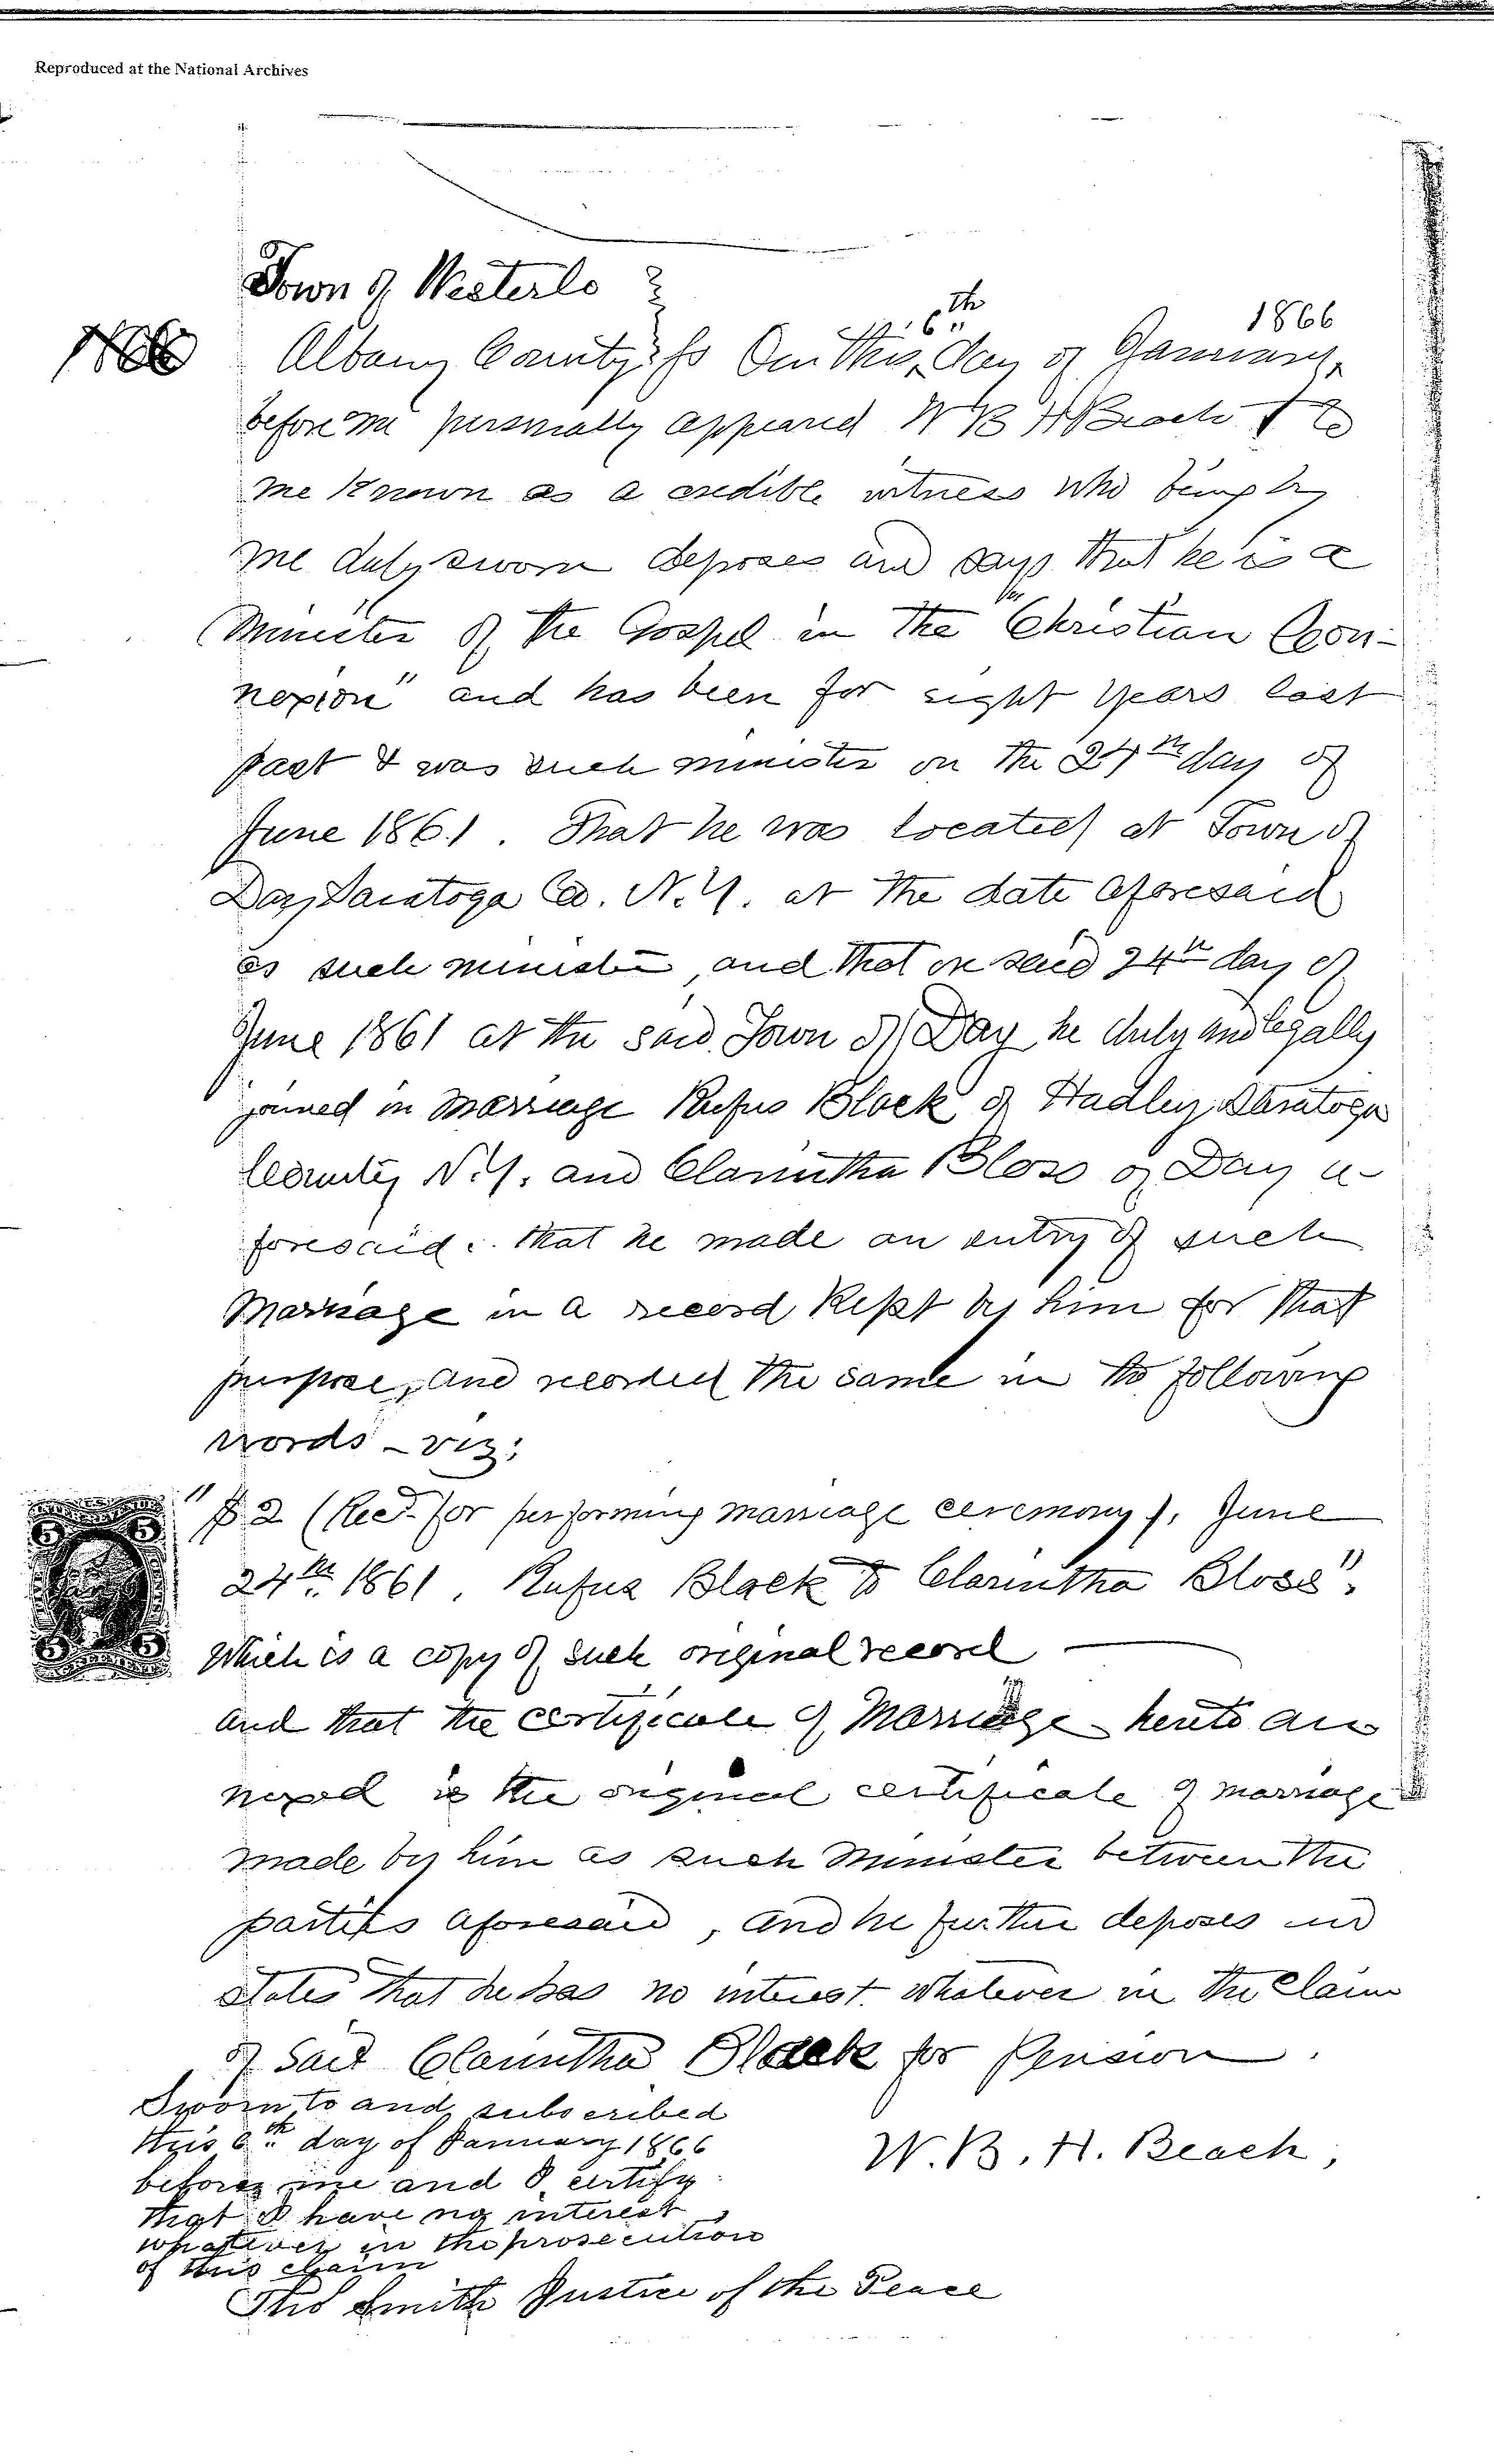 Reproduced at the National Archives
Town of Westerlo }
Albany County } ss On this 6th day of January, 1866
before me personally appeared W B H Beach to
me known as a credible witness who being by
me duly sworn deposes and says that he is a
Minister of the Gospel in the "Christian Con-
nexion" and has been for eight years last
past & was such minister on the 24th day of
June 1861. That he was located at Town of
Day, Saratoga Co. N.Y. at the date aforesaid
as such minister, and that on said 24th day of
June 1861 at the said Town of Day he duly and legally
joined in marriage Rufus Black of Hadley, Saratoga
County N.Y. and Clarintha Bloss of Day a-
foresaid: that he made an entry of such
Marriage in a record kept by him for that
purpose, and recorded the same in the following
words - viz:
"$2 (Recd. for performing marriage ceremony), June
24th 1861, Rufus Black to Clarintha Bloss".
Which is a copy of such original record
and that the certificate of Marriage hereto an
nexed is the original certificate of marriage
made by him as such Minister between the
parties aforesaid, and he further deposes and
states that he has no interest whatever in the claim
of said Clarintha Black for Pension.
Sworn to and subscribed
this 6th day of January 1866
before me and I certify
that I have no interest
whatever in the prosecution
of this claim
W. B. H. Beach,
Smith Justice of the Peace
5 5
5 5